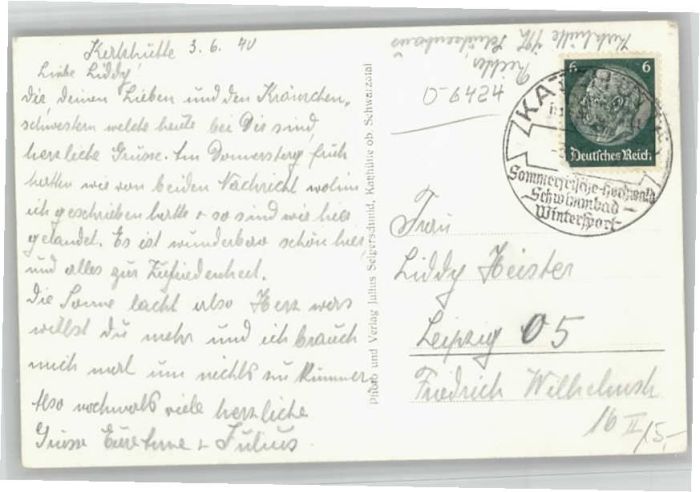 Katzhütte 3.6.40
Liebe Liddy!
Die, deinen Lieben und den Kränzchen,
schwestern welche heute bei Dir sind,
herzliche Grüsse. Am Donnerstag früh
hatten wir von beiden Nachricht wohin
ich geschrieben hatte + so sind wir hier
gelandet. Es ist wunderbar schön hier,
und alles zur Zufriedenheit.
Die Sonne lacht also Herz was
willst du mehr und ich brauch
mich mal um nichts zu kümmern
Also nochmals viele herzliche
Grüsse Eure + Julius.
Photo und Verlag Julius Selgerschmid, Katzhütte ob. Schwarzatal
Katzhütte i/Th. Schützenhaus
D-6424
6 6
Deutsches Reich
KATZHÜTTE
Sommerfrische-Hochwald
Schwimmbad
Wintersport
Frau
Liddy Heister
Leipzig O5
Friedrich Wilhelmstr
16 II
15,-